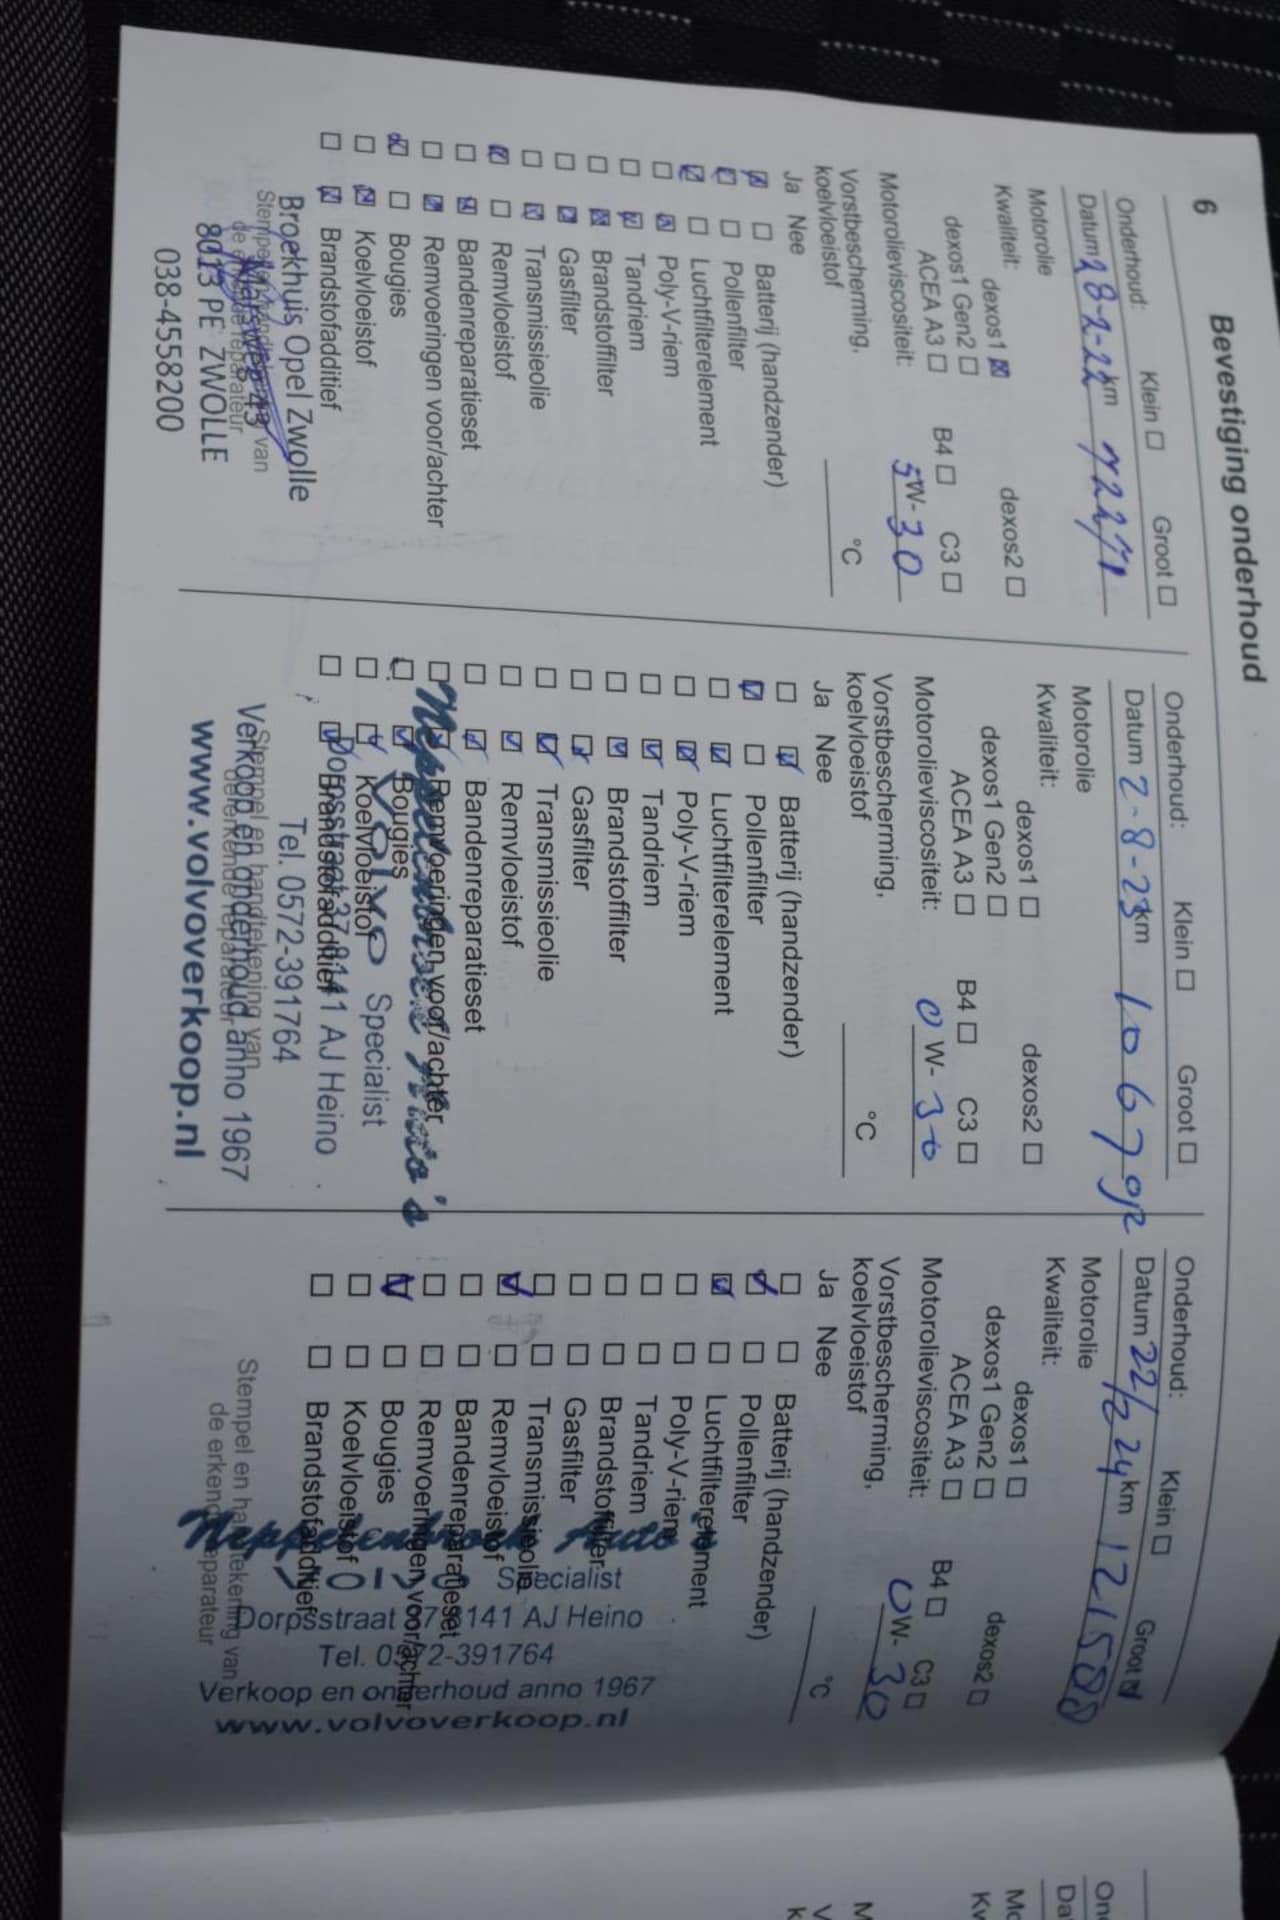 6 Bevestiging onderhoud
Onderhoud: Klein ☐ Groot ☐
Datum 28-2-22 km
Motorolie
Kwaliteit: dexos1 ☒ dexos2 ☐
dexos1 Gen2 ☐
ACEA A3 ☐ B4 ☐ C3 ☐
Motorolieviscositeit: 5W-30
Vorstbescherming,
koelvloeistof °C
Ja Nee
☒ ☐ Batterij (handzender)
☒ ☐ Pollenfilter
☒ ☐ Luchtfilterelement
☐ ☒ Poly-V-riem
☐ ☒ Tandriem
☐ ☒ Brandstoffilter
☐ ☒ Gasfilter
☐ ☒ Transmissieolie
☒ ☐ Remvloeistof
☐ ☒ Bandenreparatieset
☐ ☒ Remvoeringen voor/achter
☒ ☐ Bougies
☐ ☒ Koelvloeistof
☐ ☒ Brandstofadditief
Broekhuis Opel Zwolle
8013 PE ZWOLLE
038-4558200
Onderhoud: Klein ☐ Groot ☐
Datum 2-8-23 km 106792
Motorolie
Kwaliteit: dexos1 ☐ dexos2 ☐
dexos1 Gen2 ☐
ACEA A3 ☐ B4 ☐ C3 ☐
Motorolieviscositeit: 0W-30
Vorstbescherming,
koelvloeistof °C
Ja Nee
☐ ☑ Batterij (handzender)
☑ ☐ Pollenfilter
☐ ☑ Luchtfilterelement
☐ ☑ Poly-V-riem
☐ ☑ Tandriem
☐ ☑ Brandstoffilter
☐ ☑ Gasfilter
☐ ☑ Transmissieolie
☐ ☑ Remvloeistof
☐ ☑ Bandenreparatieset
☐ ☑ Remvoeringen voor/achter
☐ ☑ Bougies
☐ ☑ Koelvloeistof
☐ ☑ Brandstofadditief
Volvo Specialist
Dorpsstraat 37 8141 AJ Heino
Tel. 0572-391764
Stempel en handtekening van
de erkende reparateur
Verkoop en onderhoud anno 1967
www.volvoverkoop.nl
Onderhoud: Klein ☐ Groot ☑
Datum 22/2 24 km 121508
Motorolie
Kwaliteit: dexos1 ☐ dexos2 ☐
dexos1 Gen2 ☐
ACEA A3 ☐ B4 ☐ C3 ☐
Motorolieviscositeit: 0W-30
Vorstbescherming,
koelvloeistof °C
Ja Nee
☐ ☐ Batterij (handzender)
☑ ☐ Pollenfilter
☑ ☐ Luchtfilterelement
☐ ☐ Poly-V-riem
☐ ☐ Tandriem
☐ ☐ Brandstoffilter
☐ ☐ Gasfilter
☐ ☐ Transmissieolie
☑ ☐ Remvloeistof
☐ ☐ Bandenreparatieset
☐ ☐ Remvoeringen voor/achter
☑ ☐ Bougies
☐ ☐ Koelvloeistof
☐ ☐ Brandstofadditief
Stempel en handtekening van
de erkende reparateur
Volvo Specialist
Dorpsstraat 37 8141 AJ Heino
Tel. 0572-391764
Verkoop en onderhoud anno 1967
www.volvoverkoop.nl